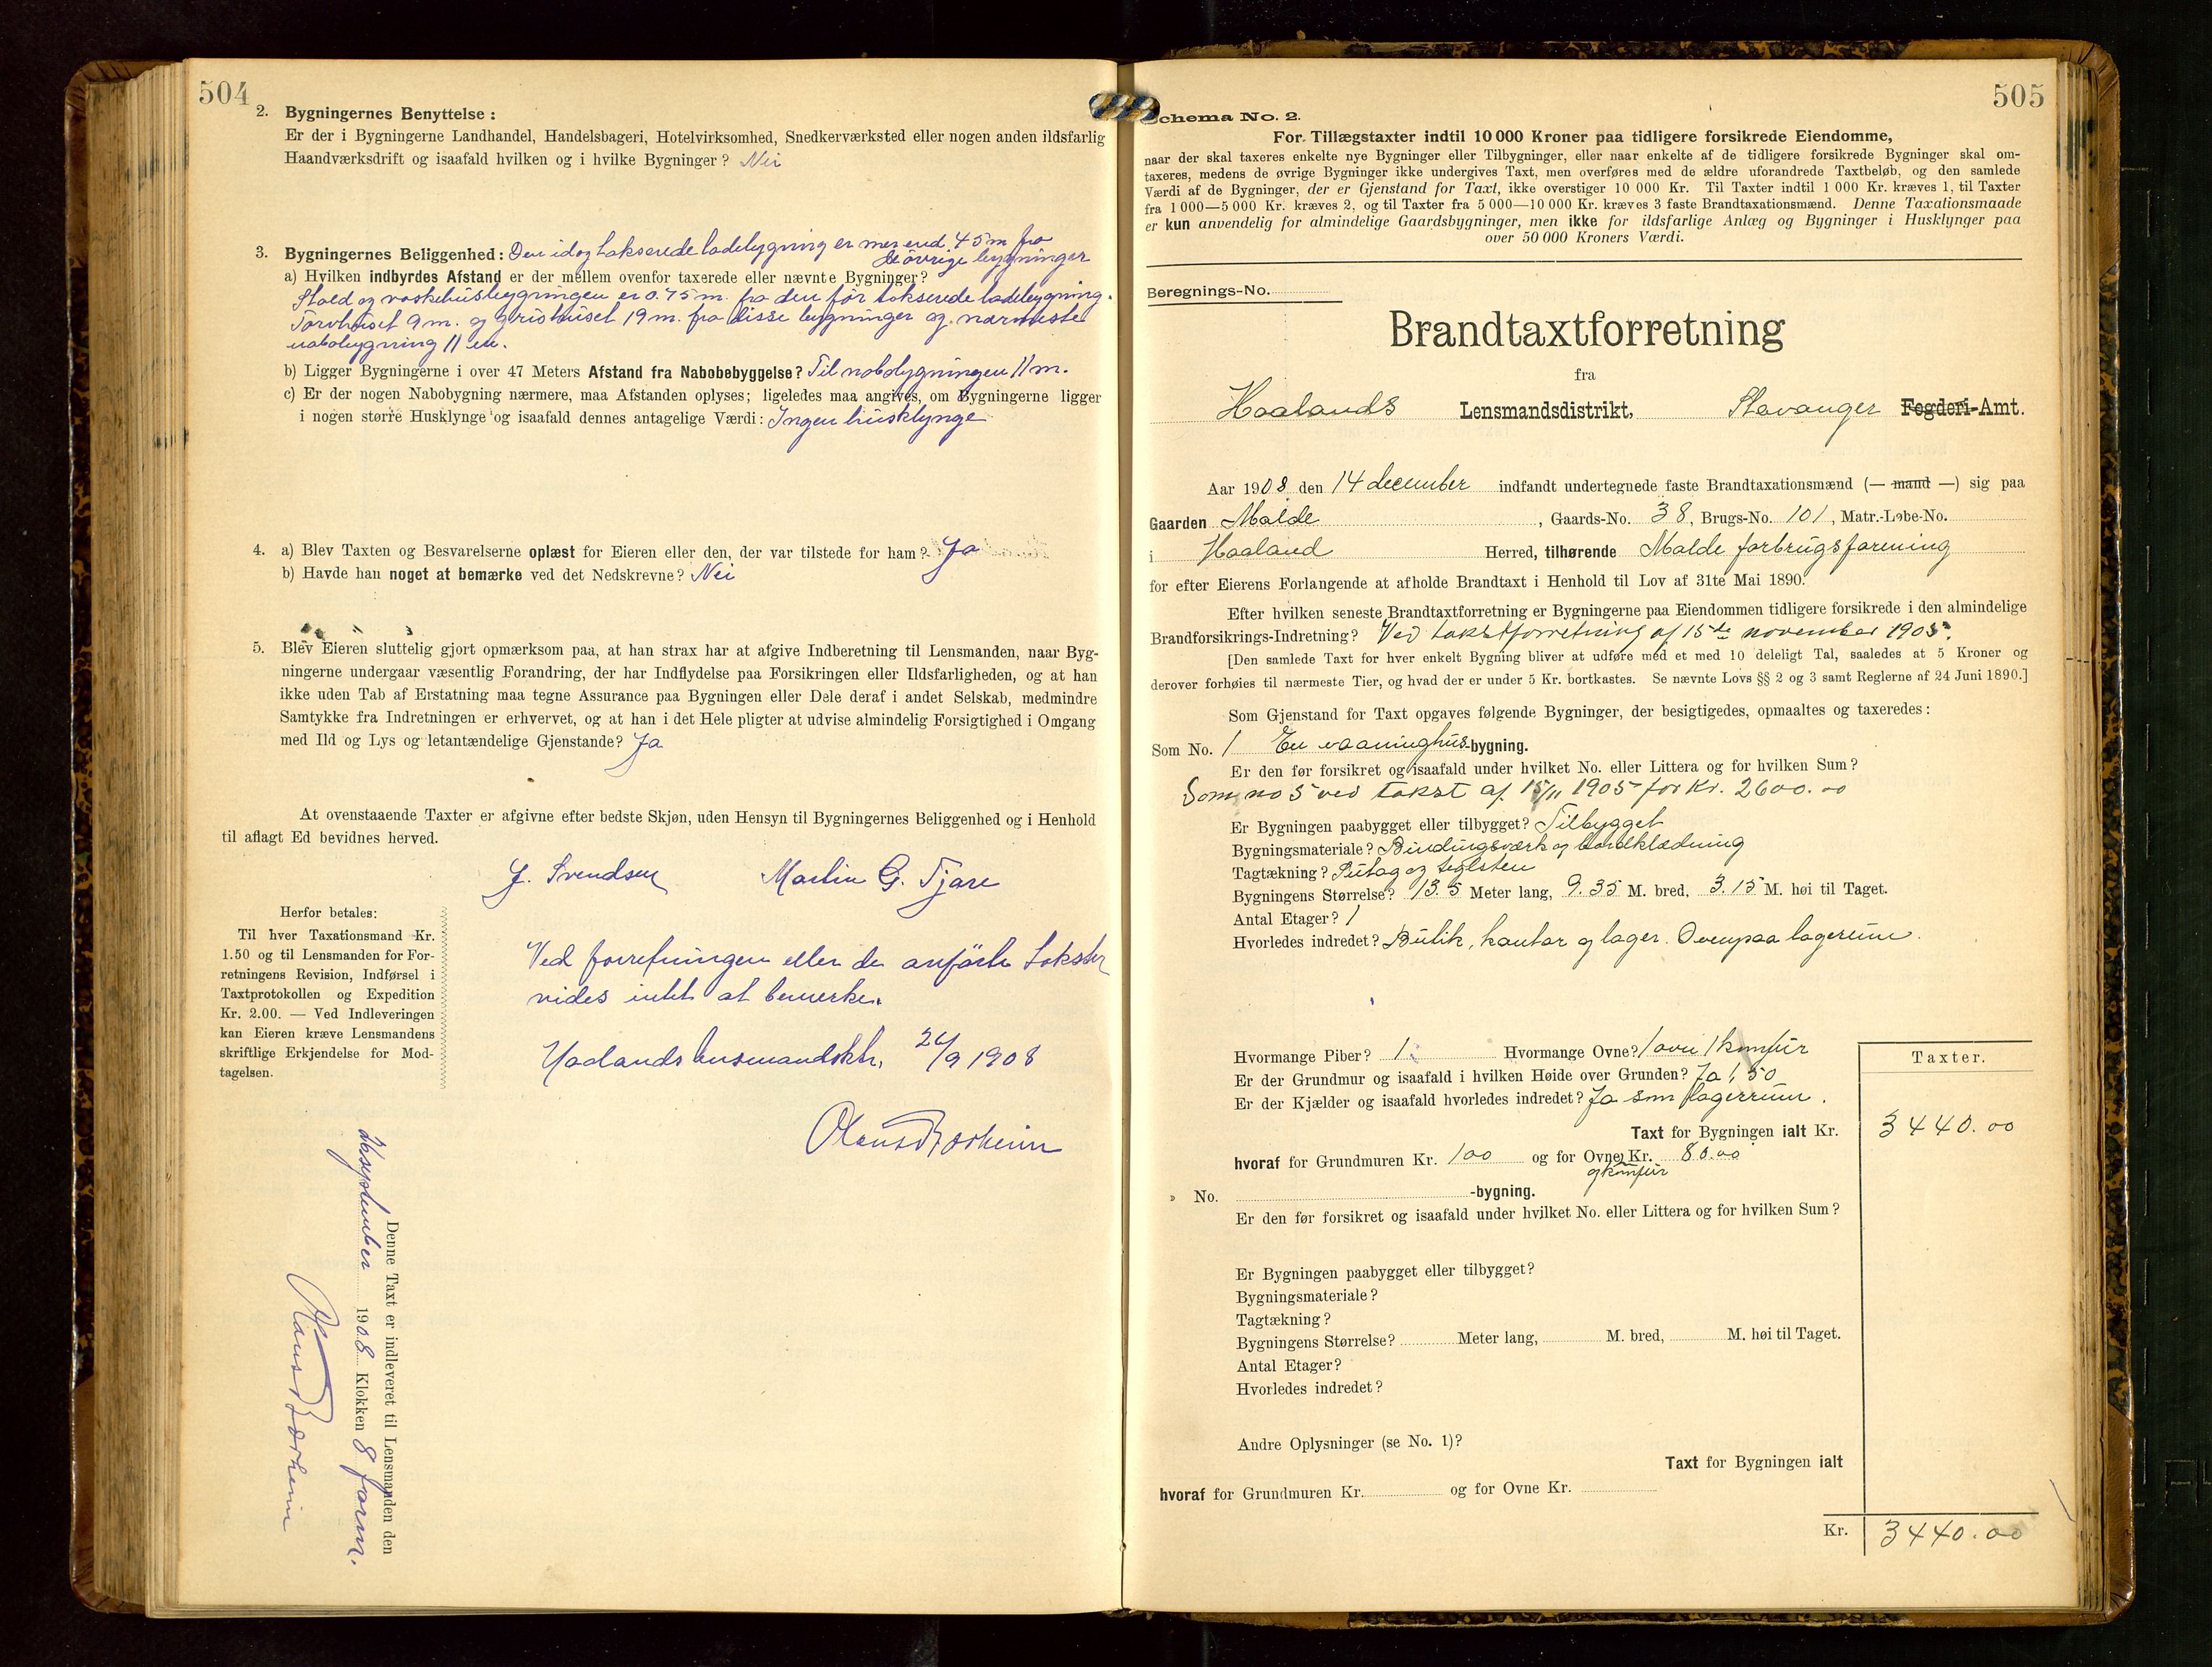 504
2. Bygningernes Benyttelse :
Er der i Bygningerne Landhandel, Handelsbageri, Hotelvirksomhed, Snedkerværksted eller nogen anden ildsfarlig
Haandværksdrift og isaafald hvilken og i hvilke Bygninger ? Nei
3. Bygningernes Beliggenhed : Den idag takserede ladebygning er mer end 45 m fra
de øvrige bygninger
a) Hvilken indbyrdes Afstand er der mellem ovenfor taxerede eller nævnte Bygninger?
Stald og vaskehusbygningen er 0.75 m. fra den før takserede ladebygning.
Torvhuset 9 m. og grishuset 19 m. fra disse bygninger og nærmeste
nabobygning 11 m.
b) Ligger Bygningerne i over 47 Meters Afstand fra Nabobebyggelse? Til nabobygningen 11 m.
c) Er der nogen Nabobygning nærmere, maa Afstanden oplyses; ligeledes maa angives, om Bygningerne ligger
i nogen større Husklynge og isaafald dennes antagelige Værdi : Ingen husklynge
4. a) Blev Taxten og Besvarelserne oplæst for Eieren eller den, der var tilstede for ham ? Ja
b) Havde han noget at bemærke ved det Nedskrevne? Nei
5. Blev Eieren sluttelig gjort opmærksom paa, at han strax har at afgive Indberetning til Lensmanden, naar Byg-
ningerne undergaar væsentlig Forandring, der har Indflydelse paa Forsikringen eller Ildsfarligheden, og at han
ikke uden Tab af Erstatning maa tegne Assurance paa Bygningen eller Dele deraf i andet Selskab, medmindre
Samtykke fra Indretningen er erhvervet, og at han i det Hele pligter at udvise almindelig Forsigtighed i Omgang
med Ild og Lys og letantændelige Gjenstande? Ja
At ovenstaaende Taxter er afgivne efter bedste Skjøn, uden Hensyn til Bygningernes Beliggenhed og i Henhold
til aflagt Ed bevidnes herved.
J. Svendsen Martin G. Tjøre
Herfor betales:
Til hver Taxationsmand Kr.
1.50 og til Lensmanden for For-
retningens Revision, Indførsel i
Taxtprotokollen og Expedition
Kr. 2.00. — Ved Indleveringen
kan Eieren kræve Lensmandens
skriftlige Erkjendelse for Mod-
tagelsen.
Ved forretningen eller de anførte takster
vides intet at bemerke.
Haalands lensmandsktr, 24/9 1908
Olaus Børheim
Denne Taxt er indleveret til Lensmanden den
september 1908 Klokken 8 form.
Olaus Børheim
505
Schema No. 2.
For Tillægstaxter indtil 10 000 Kroner paa tidligere forsikrede Eiendomme,
naar der skal taxeres enkelte nye Bygninger eller Tilbygninger, eller naar enkelte af de tidligere forsikrede Bygninger skal om-
taxeres, medens de øvrige Bygninger ikke undergives Taxt, men overføres med de ældre uforandrede Taxtbeløb, og den samlede
Værdi af de Bygninger, der er Gjenstand for Taxt, ikke overstiger 10 000 Kr. Til Taxter indtil 1 000 Kr. kræves 1, til Taxter
fra 1 000—5 000 Kr. kræves 2, og til Taxter fra 5 000—10 000 Kr. kræves 3 faste Brandtaxationsmænd. Denne Taxationsmaade
er kun anvendelig for almindelige Gaardsbygninger, men ikke for ildsfarlige Anlæg og Bygninger i Husklynger paa
over 50 000 Kroners Værdi.
Beregnings-No.
Brandtaxtforretning
fra
Haalands Lensmandsdistrikt, Stavanger Fogderi-Amt.
Aar 1908 den 14 december indfandt undertegnede faste Brandtaxationsmænd (— mand —) sig paa
Gaarden Malde , Gaards-No. 38, Brugs-No. 101, Matr.-Løbe-No.
i Haaland Herred, tilhørende Malde forbrugsforening
for efter Eierens Forlangende at afholde Brandtaxt i Henhold til Lov af 31te Mai 1890.
Efter hvilken seneste Brandtaxtforretning er Bygningerne paa Eiendommen tidligere forsikrede i den almindelige
Brandforsikrings-Indretning? Ved takstforretning af 15de november 1905.
[Den samlede Taxt for hver enkelt Bygning bliver at udføre med et med 10 deleligt Tal, saaledes at 5 Kroner og
derover forhøies til nærmeste Tier, og hvad der er under 5 Kr. bortkastes. Se nævnte Lovs §§ 2 og 3 samt Reglerne af 24 Juni 1890.]
Som Gjenstand for Taxt opgaves følgende Bygninger, der besigtigedes, opmaaltes og taxeredes :
Som No. 1 En vaaninghus-bygning.
Er den før forsikret og isaafald under hvilket No. eller Littera og for hvilken Sum?
Som no 5 ved takst af 15/11 1905 for Kr. 2600.00
Er Bygningen paabygget eller tilbygget? Tilbygget
Bygningsmateriale? Bindingsværk og bordklædning
Tagtækning? Sutag og teglsten
Bygningens Størrelse? 13.5 Meter lang, 9.35 M. bred, 3.15 M. høi til Taget.
Antal Etager? 1
Hvorledes indredet? Butik, kantor og lager. Ovenpaa lagerrum.
Hvormange Piber? 1. Hvormange Ovne? 1 ovn 1 komfür
Er der Grundmur og isaafald i hvilken Høide over Grunden? Ja 1,50
Er der Kjælder og isaafald hvorledes indredet? Ja som lagerrum.
Taxter.
Taxt for Bygningen ialt Kr. 3440.00
hvoraf for Grundmuren Kr. 100 og for Ovne Kr. 80.00
og komfür
» No. -bygning.
Er den før forsikret og isaafald under hvilket No. eller Littera og for hvilken Sum?
Er Bygningen paabygget eller tilbygget?
Bygningsmateriale?
Tagtækning?
Bygningens Størrelse? Meter lang, M. bred, M. høi til Taget.
Antal Etager?
Hvorledes indredet?
Andre Oplysninger (se No. 1)?
Taxt for Bygningen ialt
hvoraf for Grundmuren Kr. og for Ovne Kr.
Kr. 3440.00